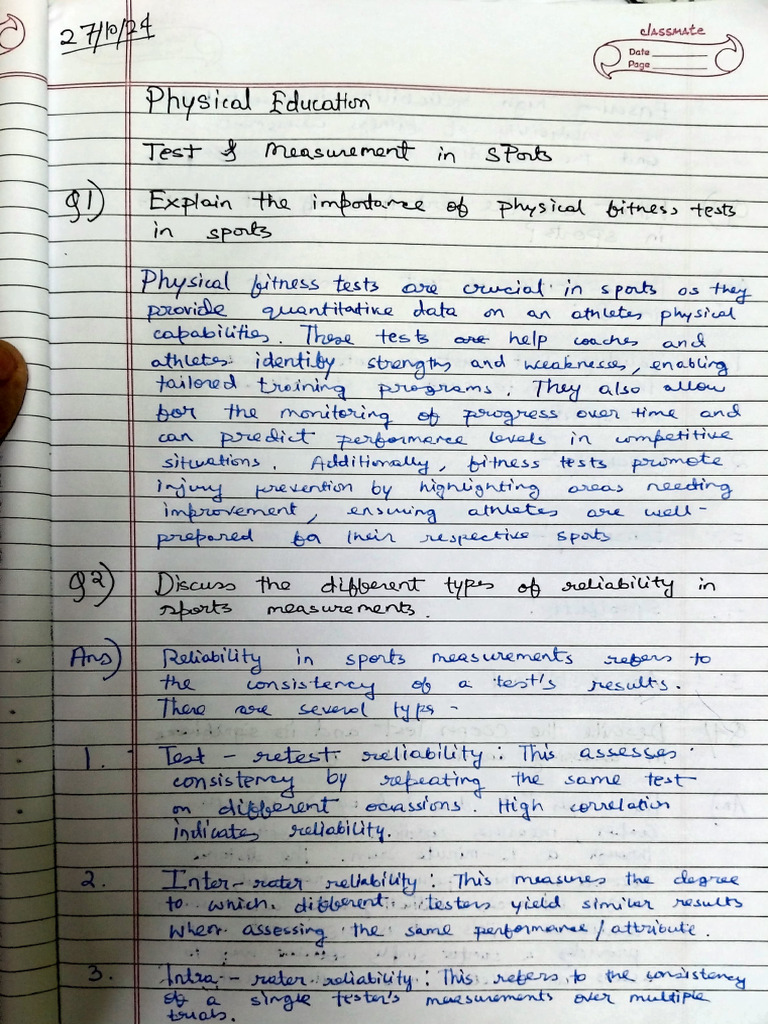 27/10/24
classmate
Date
Page
Physical Education
Test & Measurement in Sports
Q1) Explain the importance of physical fitness tests
in sports
Physical fitness tests are crucial in sports as they
provide quantitative data on an athletes physical
capabilities. These tests are help coaches and
athletes identify strengths and weaknesses, enabling
tailored training programs. They also allow
for the monitoring of progress over time and
can predict performance levels in competitive
situations. Additionally, fitness tests promote
injury prevention by highlighting areas needing
improvement, ensuring athletes are well-
prepared for their respective sports
Q2) Discuss the different types of reliability in
sports measurements.
Ans) Reliability in sports measurements refers to
the consistency of a test's results.
There are several types -
1. Test - retest reliability : This assesses
consistency by repeating the same test
on different ocassions. High correlation
indicates reliability.
2. Inter-rater reliability : This measures the degree
to which different testers yield similar results
when assessing the same performance/attribute.
3. Intra - rater reliability : This refers to the consistency
of a single tester's measurements over multiple
trials.